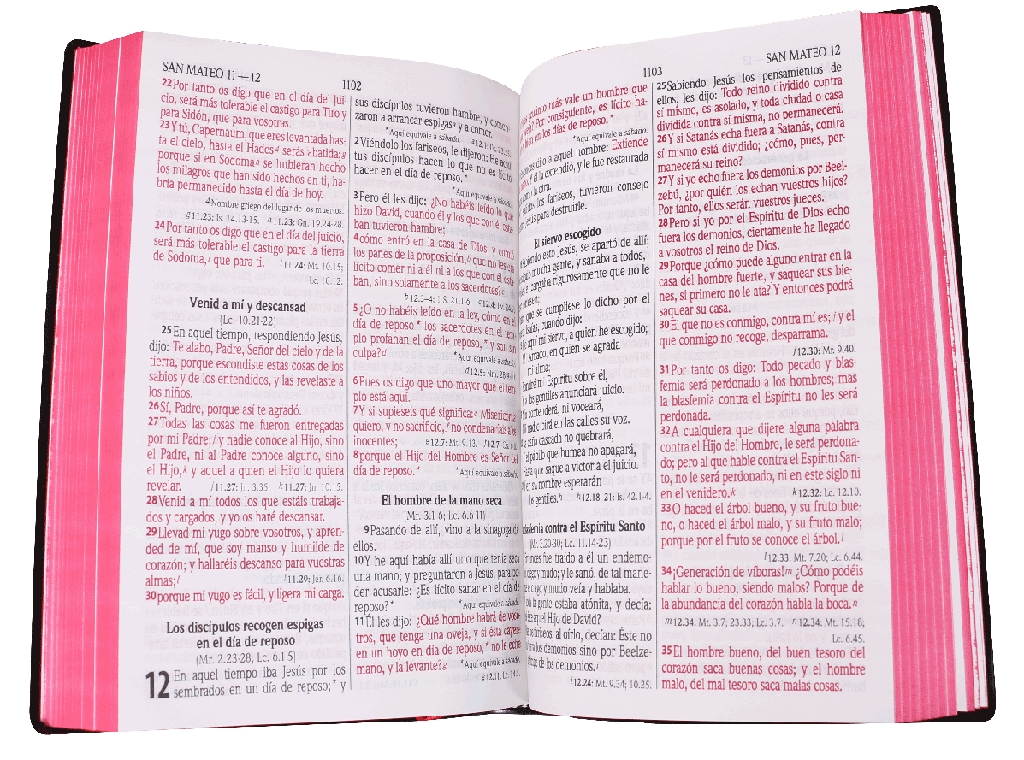 SAN MATEO 11—12
1102
22Por tanto os digo que en el día del jui-
cio, será más tolerable el castigo para Tiro y
para Sidón, que para vosotras.
23Y tú, Capernaum, que eres levantada has-
ta el cielo, hasta el Hades serás abatida;
porque si en Sodoma se hubieran hecho
los milagros que han sido hechos en ti, ha-
bría permanecido hasta el día de hoy.
Nombre griego del lugar de los muertos.
11.23: Is. 14.13-15. 11.23: Gn. 19.24-28.
24Por tanto os digo que en el día del juicio,
será más tolerable el castigo para la tierra
de Sodoma, que para ti. 11.24: Mt. 10.15;
Lc. 10.12.
Venid a mí y descansad
(Lc. 10.21-22)
25En aquel tiempo, respondiendo Jesús,
dijo: Te alabo, Padre, Señor del cielo y de la
tierra, porque escondiste estas cosas de los
sabios y de los entendidos, y las revelaste a
los niños.
26Sí, Padre, porque así te agradó.
27Todas las cosas me fueron entregadas
por mi Padre; y nadie conoce al Hijo, sino
el Padre, ni al Padre conoce alguno, sino
el Hijo, y aquel a quien el Hijo lo quiera
revelar. 11.27: Jn. 3.35. 11.27: Jn. 10.15.
28Venid a mí todos los que estáis trabaja-
dos y cargados, y yo os haré descansar.
29Llevad mi yugo sobre vosotros, y apren-
ded de mí, que soy manso y humilde de
corazón; y hallaréis descanso para vuestras
almas; 11.29: Jer. 6.16.
30porque mi yugo es fácil, y ligera mi carga.
Los discípulos recogen espigas
en el día de reposo
(Mr. 2.23-28; Lc. 6.1-5)
12 En aquel tiempo iba Jesús por los
sembrados en un día de reposo;* y
sus discípulos tuvieron hambre, y comen-
zaron a arrancar espigas y a comer.
*Aquí equivale a sábado.
2Viéndolo los fariseos, le dijeron: He aquí
tus discípulos hacen lo que no es lícito
hacer en el día de reposo.*
*Aquí equivale a sábado.
3Pero él les dijo: ¿No habéis leído lo que
hizo David, cuando él y los que con él esta-
ban tuvieron hambre;
4cómo entró en la casa de Dios, y comió
los panes de la proposición, que no les era
lícito comer ni a él ni a los que con él esta-
ban, sino solamente a los sacerdotes?
12.3-4: 1 S. 21.1-6.
5¿O no habéis leído en la ley, cómo en el
día de reposo* los sacerdotes en el tem-
plo profanan el día de reposo,* y son sin
culpa? *Aquí equivale a sábado.
6Pues os digo que uno mayor que el tem-
plo está aquí.
7Y si supieseis qué significa: Misericordia
quiero, y no sacrificio, no condenaríais a los
inocentes; 12.7: Mt. 9.13.
8porque el Hijo del Hombre es Señor del
día de reposo.* *Aquí equivale a sábado.
El hombre de la mano seca
(Mr. 3.1-6; Lc. 6.6-11)
9Pasando de allí, vino a la sinagoga de
ellos.
10Y he aquí había allí uno que tenía seca
una mano; y preguntaron a Jesús, para po-
der acusarle: ¿Es lícito sanar en el día de
reposo?* *Aquí equivale a sábado.
11Él les dijo: ¿Qué hombre habrá de voso-
tros, que tenga una oveja, y si ésta cayere
en un hoyo en día de reposo,* no le eche
mano, y la levante? *Aquí equivale a sábado.
1103
SAN MATEO 12
más vale un hombre que
Por consiguiente, es lícito ha-
en los días de reposo.*
*Aquí equivale a sábado.
a aquel hombre: Extiende
la extendió, y le fue restaurada
la otra.
los fariseos, tuvieron consejo
para destruirle.
El siervo escogido
esto Jesús, se apartó de allí;
mucha gente, y sanaba a todos,
rigurosamente que no le
que se cumpliese lo dicho por el
cuando dijo:
aquí mi siervo, a quien he escogido;
Amado, en quien se agrada
mi alma;
mi Espíritu sobre él,
los gentiles anunciará juicio.
ni voceará,
oirá en las calles su voz.
caña cascada no quebrará,
pábilo que humea no apagará,
que saque a victoria el juicio.
en su nombre esperarán
los gentiles. 12.18-21: Is. 42.1-4.
blasfemia contra el Espíritu Santo
(Mr. 3.20-30; Lc. 11.14-23)
fue traído a él un endemo-
ciego y mudo; y le sanó, de tal mane-
ciego y mudo veía y hablaba.
la gente estaba atónita, y decía:
aquel Hijo de David?
al oírlo, decían: Éste no
los demonios sino por Beelze-
de los demonios.
12.24: Mt. 9.34; 10.25.
25Sabiendo Jesús los pensamientos de
ellos, les dijo: Todo reino dividido contra
sí mismo, es asolado, y toda ciudad o casa
dividida contra sí misma, no permanecerá.
26Y si Satanás echa fuera a Satanás, contra
sí mismo está dividido; ¿cómo, pues, per-
manecerá su reino?
27Y si yo echo fuera los demonios por Beel-
zebú, ¿por quién los echan vuestros hijos?
Por tanto, ellos serán vuestros jueces.
28Pero si yo por el Espíritu de Dios echo
fuera los demonios, ciertamente ha llegado
a vosotros el reino de Dios.
29Porque ¿cómo puede alguno entrar en la
casa del hombre fuerte, y saquear sus bie-
nes, si primero no le ata? Y entonces podrá
saquear su casa.
30El que no es conmigo, contra mí es; y el
que conmigo no recoge, desparrama.
12.30: Mr. 9.40.
31Por tanto os digo: Todo pecado y blas-
femia será perdonado a los hombres; mas
la blasfemia contra el Espíritu no les será
perdonada.
32A cualquiera que dijere alguna palabra
contra el Hijo del Hombre, le será perdona-
do; pero al que hable contra el Espíritu San-
to, no le será perdonado, ni en este siglo ni
en el venidero. 12.32: Lc. 12.10.
33O haced el árbol bueno, y su fruto bue-
no, o haced el árbol malo, y su fruto malo;
porque por el fruto se conoce el árbol.
12.33: Mt. 7.20; Lc. 6.44.
34¡Generación de víboras! ¿Cómo podéis
hablar lo bueno, siendo malos? Porque de
la abundancia del corazón habla la boca.
12.34: Mt. 3.7; 23.33; Lc. 3.7. 12.34: Mt. 15.18;
Lc. 6.45.
35El hombre bueno, del buen tesoro del
corazón saca buenas cosas; y el hombre
malo, del mal tesoro saca malas cosas.